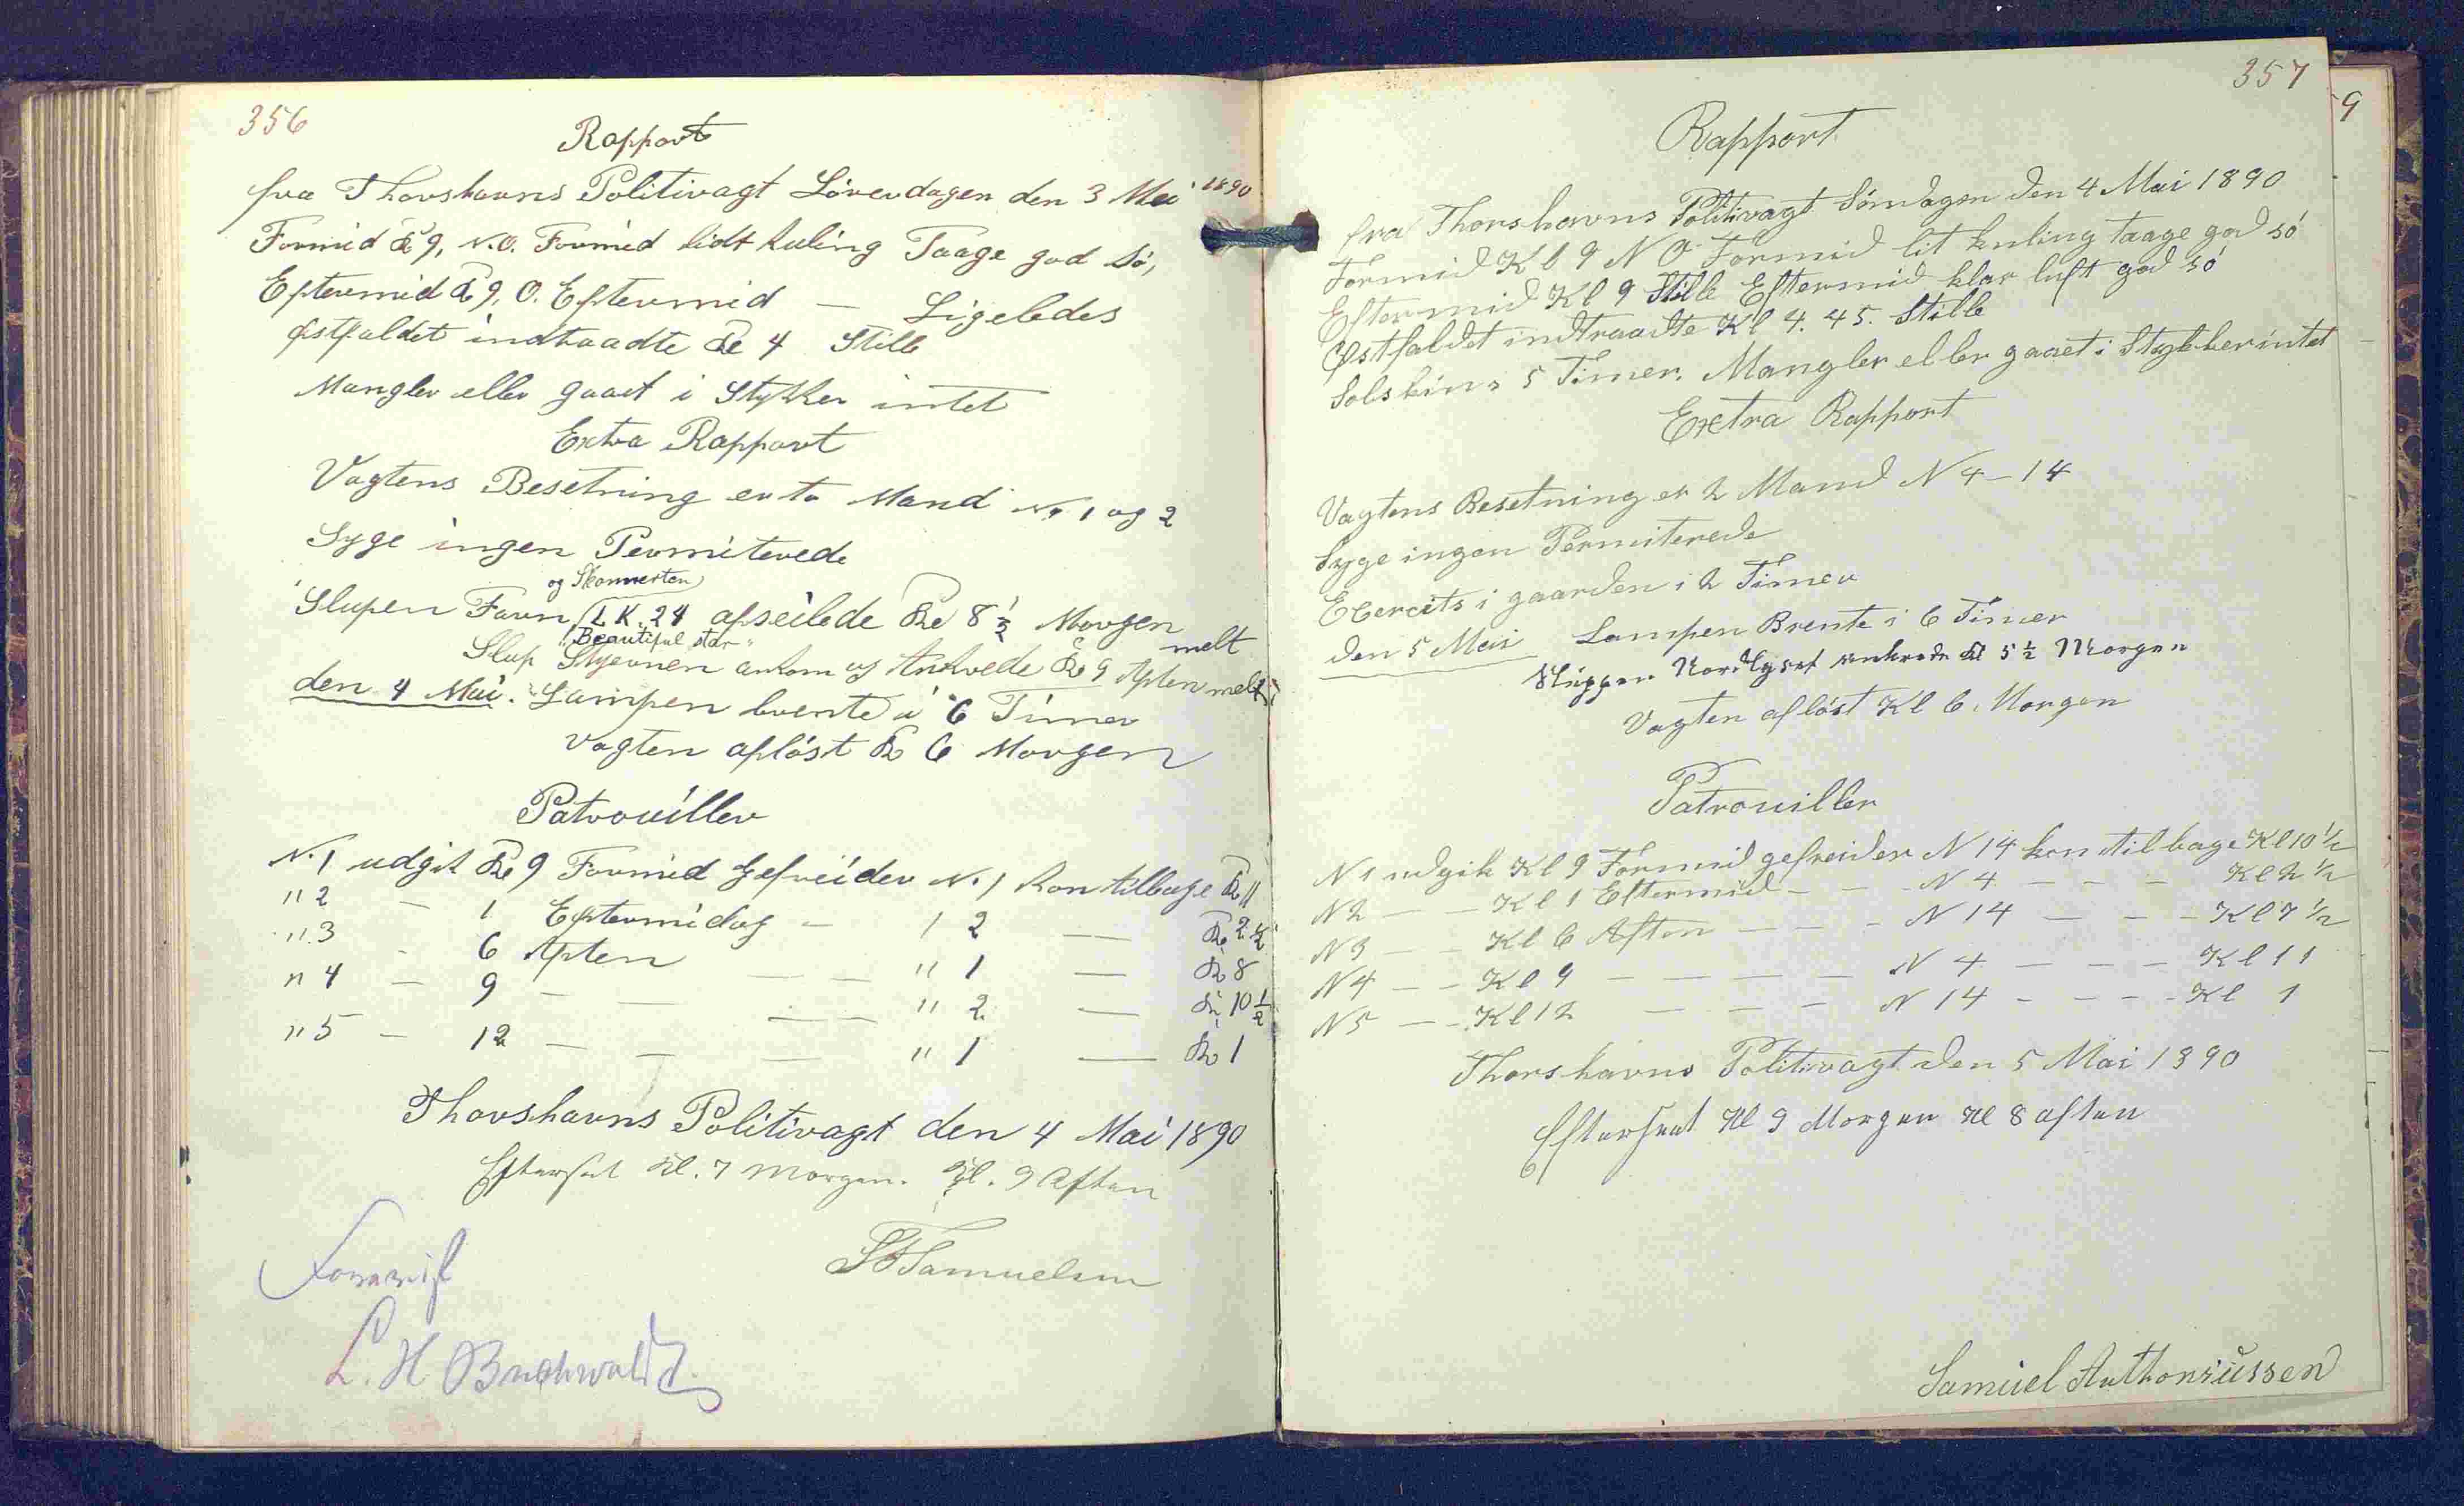 356
Rapport
fra Thorshavns Politivagt Løverdagen den 3 Mai 1890
Formid Kl 9, N.O. Formid lidt kuling Taage god Sö,
Eftermid Kl 9, O. Eftermid — Ligeledes
Østfaldet indtraadte Kl 4 Stille
Mangler eller gaaet i Stykker intet
Extra Rapport
Vagtens Besetning er to Mand No 1 og 2
Syge ingen Permiterede
og Skonnerten
Slupen Favn, LK. 24 afseilede Kl 8 1/2 Morgen melt
"Beautiful star"
Slup Stjernen ankom og Ankrede Kl 9 Aften melt
den 4 Mai. Lampen brente i 6 Timer
Vagten aflöst Kl 6 Morgen
Patrouiller
N. 1 udgik Kl 9 Formid Gefreider No 1 kom tilbage Kl 11
" 2 — 1 Eftermidag — 1 2 — Kl 2 1/2
" 3 - 6 Aften — — " 1 — Kl 8
" 4 — 9 — — — — " 2 — Kl 10 1/2
" 5 — 12 — — — " 1 — Kl 1
Thorshavns Politivagt den 4 Mai 1890
Efterset Kl. 7 Morgen. Kl. 9 Aften
Samuelsen
L. H. Buchwaldt
357
9
Rapport
fra Thorshavns Politivagt Söndagen den 4 Mai 1890
Formid Kl 9 N O Formid lit kuling taage god sö
Eftermid Kl 9 Stille Eftermid klar luft god sö
Østfaldet indtraadte Kl 4.45. Stille
Solskin i 5 Timer. Mangler eller gaaet i Stykker intet
Exetra Rapport
Vagtens Besetning er 2 Mand N 4 - 14
Syge ingen Permiterede
Ecercits i gaarden i 2 Timer
den 5 Mai Lampen Brente i 6 Timer
Skippen Nordlyset ankrede Kl 5 1/2 Morgen
Vagten aflöst Kl 6 Morgen
Patrouiller
N 1 udgik Kl 9 Formid gefreider N 14 kom tilbage Kl 10 1/2
N 2 — — Kl 1 Eftermid — — N 4 — — — Kl 2 1/2
N 3 — — Kl 6 Aften — — - N 14 — — - Kl 7 1/2
N 4 — — Kl 9 — — — — N 4 — — — Kl 11
N 5 — — Kl 12 — — — N 14 - — - - Kl 1
Thorshavns Politivagt den 5 Mai 1890
Efterseet Kl 9 Morgen Kl 8 aften
Samuel Anthoniussen